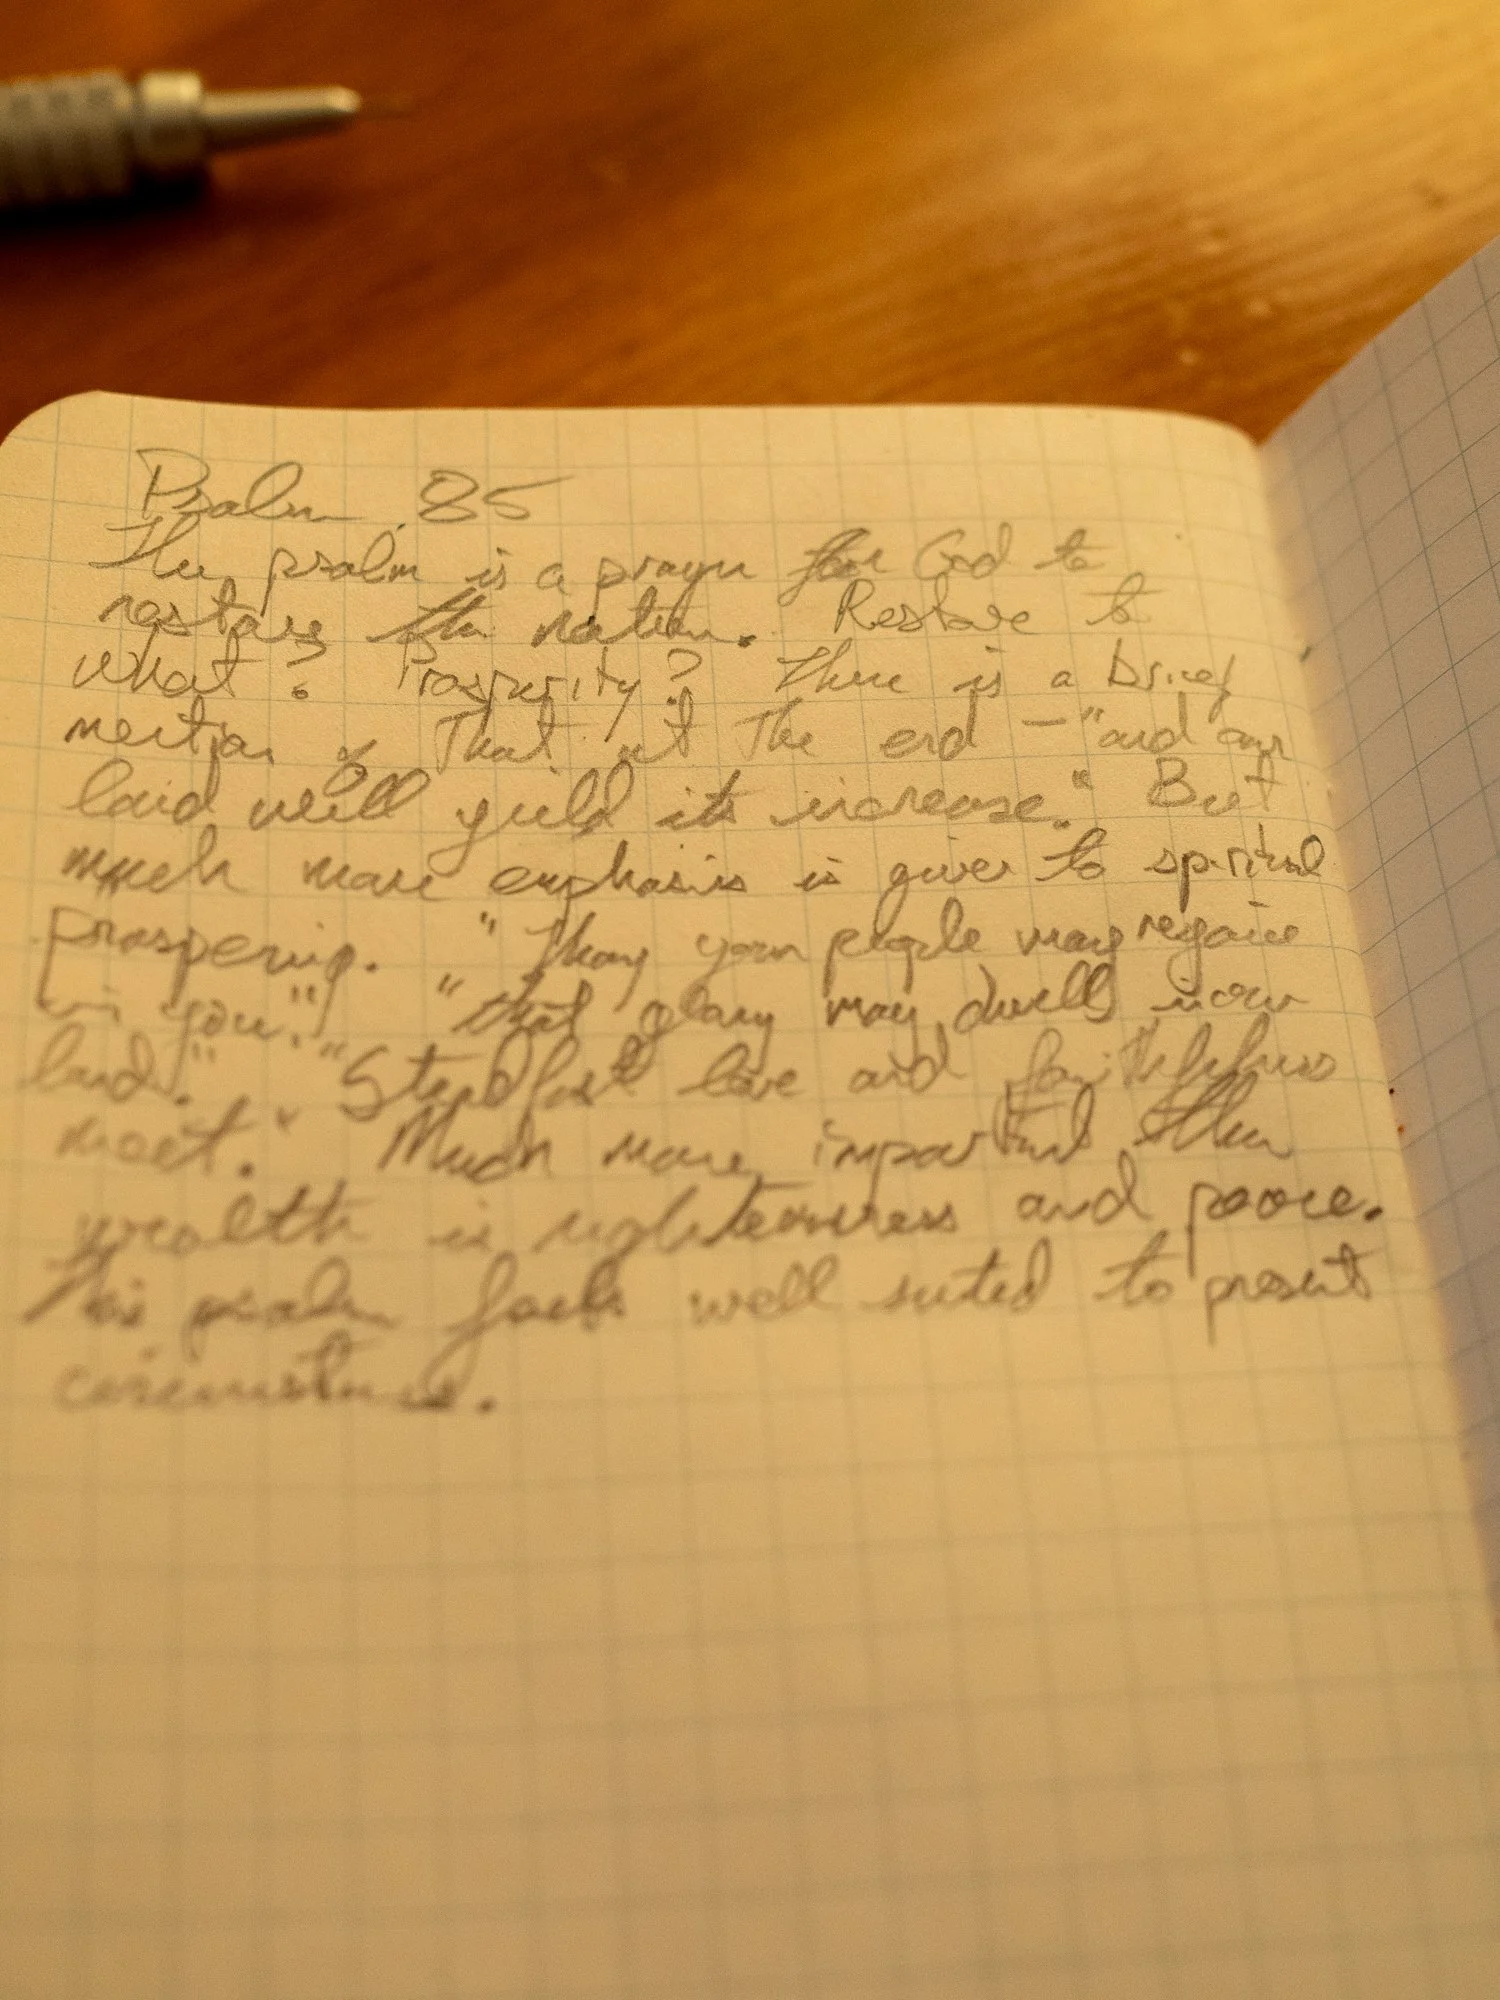 Psalm 85
The psalm is a prayer for God to
restore the nation. Restore to
what? Prosperity? There is a brief
mention of that at the end — "and our
land will yield its increase." But
much more emphasis is given to spiritual
prospering. "That your people may rejoice
in you." "that glory may dwell in our
land." "Steadfast love and faithfulness
meet." Much more important than
wealth is righteousness and peace.
This psalm feels well suited to present
circumstance.